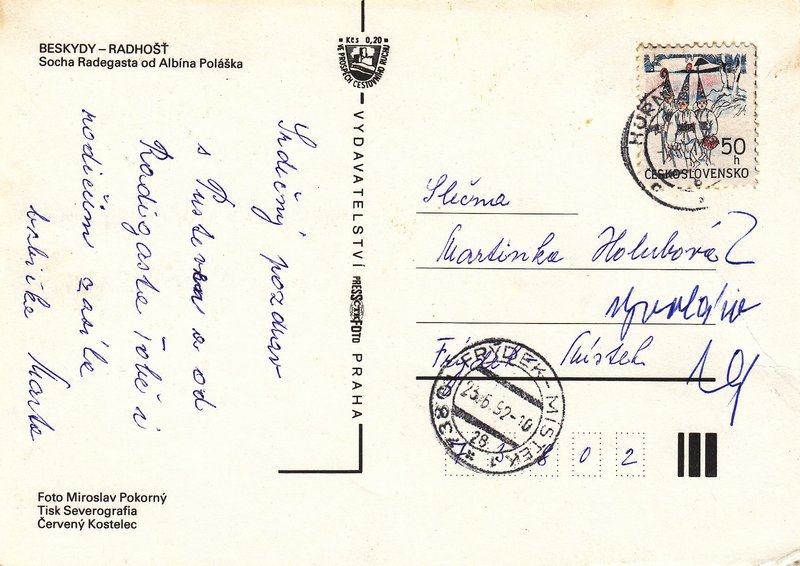 BESKYDY – RADHOŠŤ
Socha Radegasta od Albína Poláška
Kčs 0,20
VE PROSPĚCH CESTOVNÍHO RUCHU
VYDAVATELSTVÍ PRESSFOTO PRAHA
Srdečný pozdrav
s Pusteven a od
Radigasta Tobě i
rodičům zasílá
babička Marta
50 h
ČESKOSLOVENSKO
Slečna
Martinka Holubová
Frýdek Místek
FRÝDEK-MÍSTEK 1
23.6.92-10
28
8 0 2
Foto Miroslav Pokorný
Tisk Severografia
Červený Kostelec